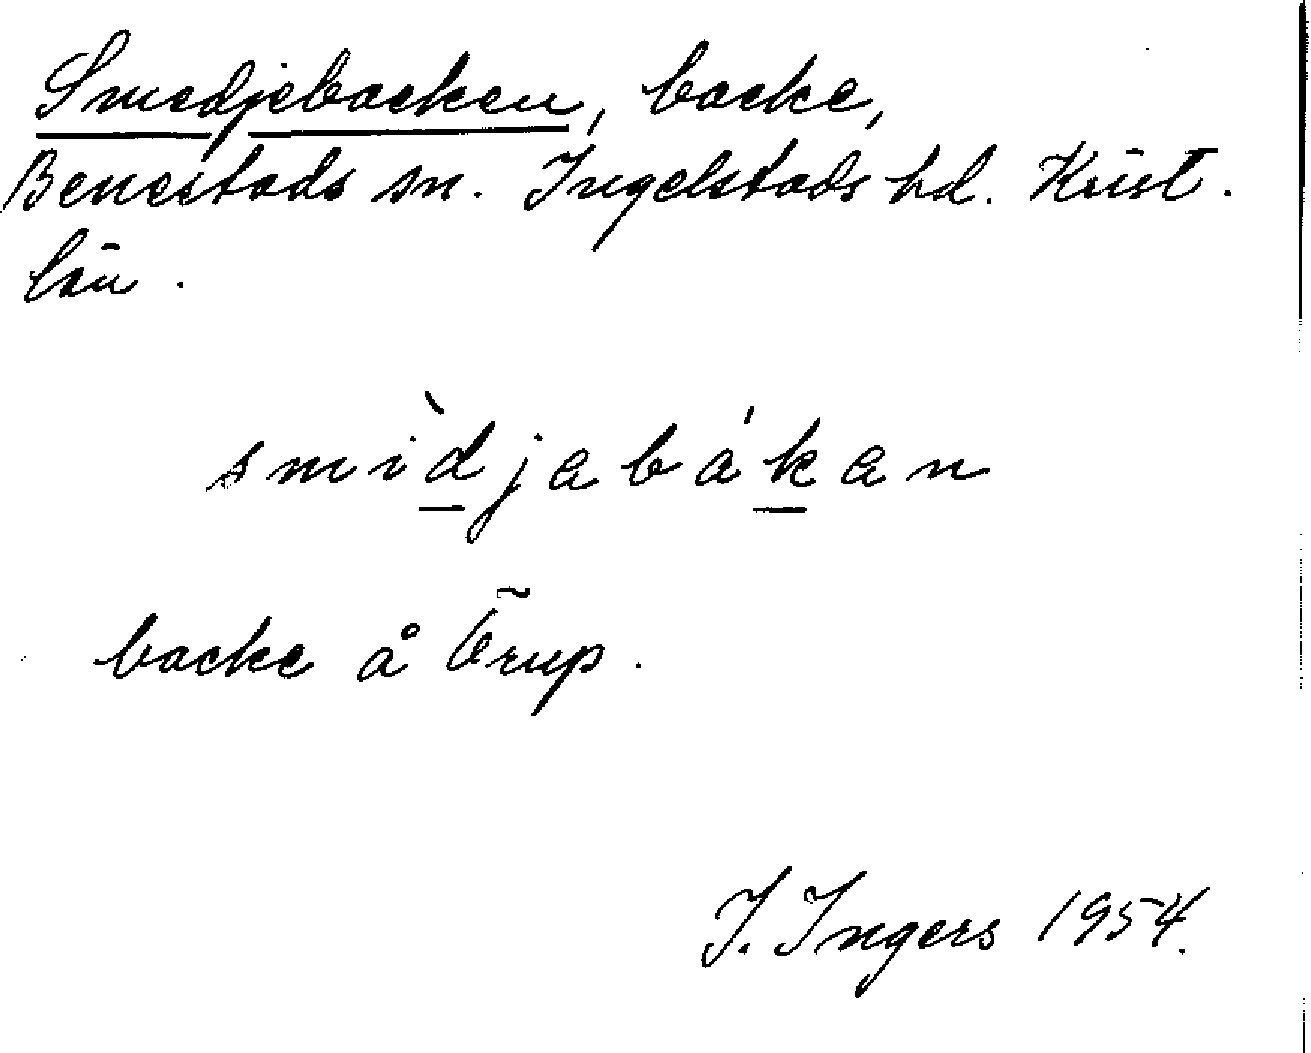 Smedjebacken, backe,
Benestads sn. Ingelstads hd. Krist.
län.
smìdjabákan
backe å Örup.
I. Ingers 1954.